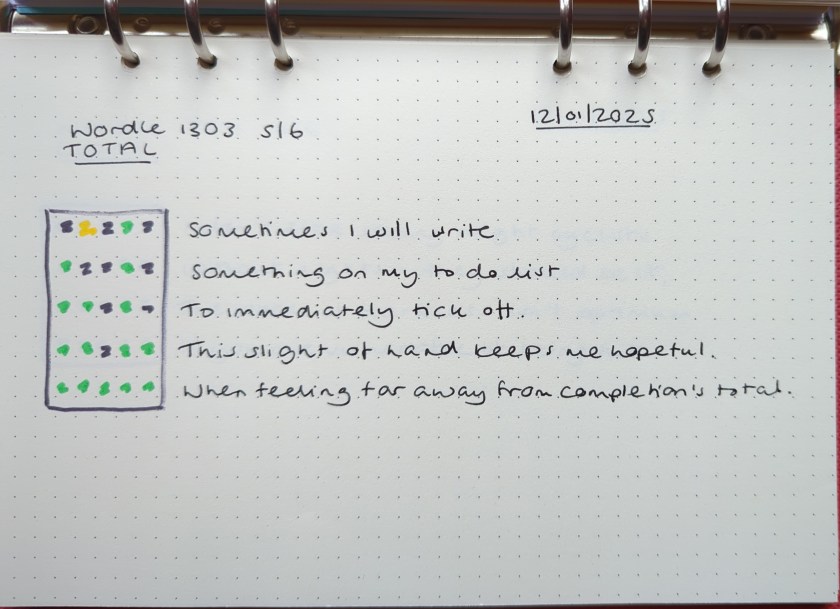 Wordle 1303 5/6
12/01/2025
TOTAL
Sometimes I will write
Something on my to do list
To immediately tick off.
This slight of hand keeps me hopeful.
When feeling far away from completion's total.